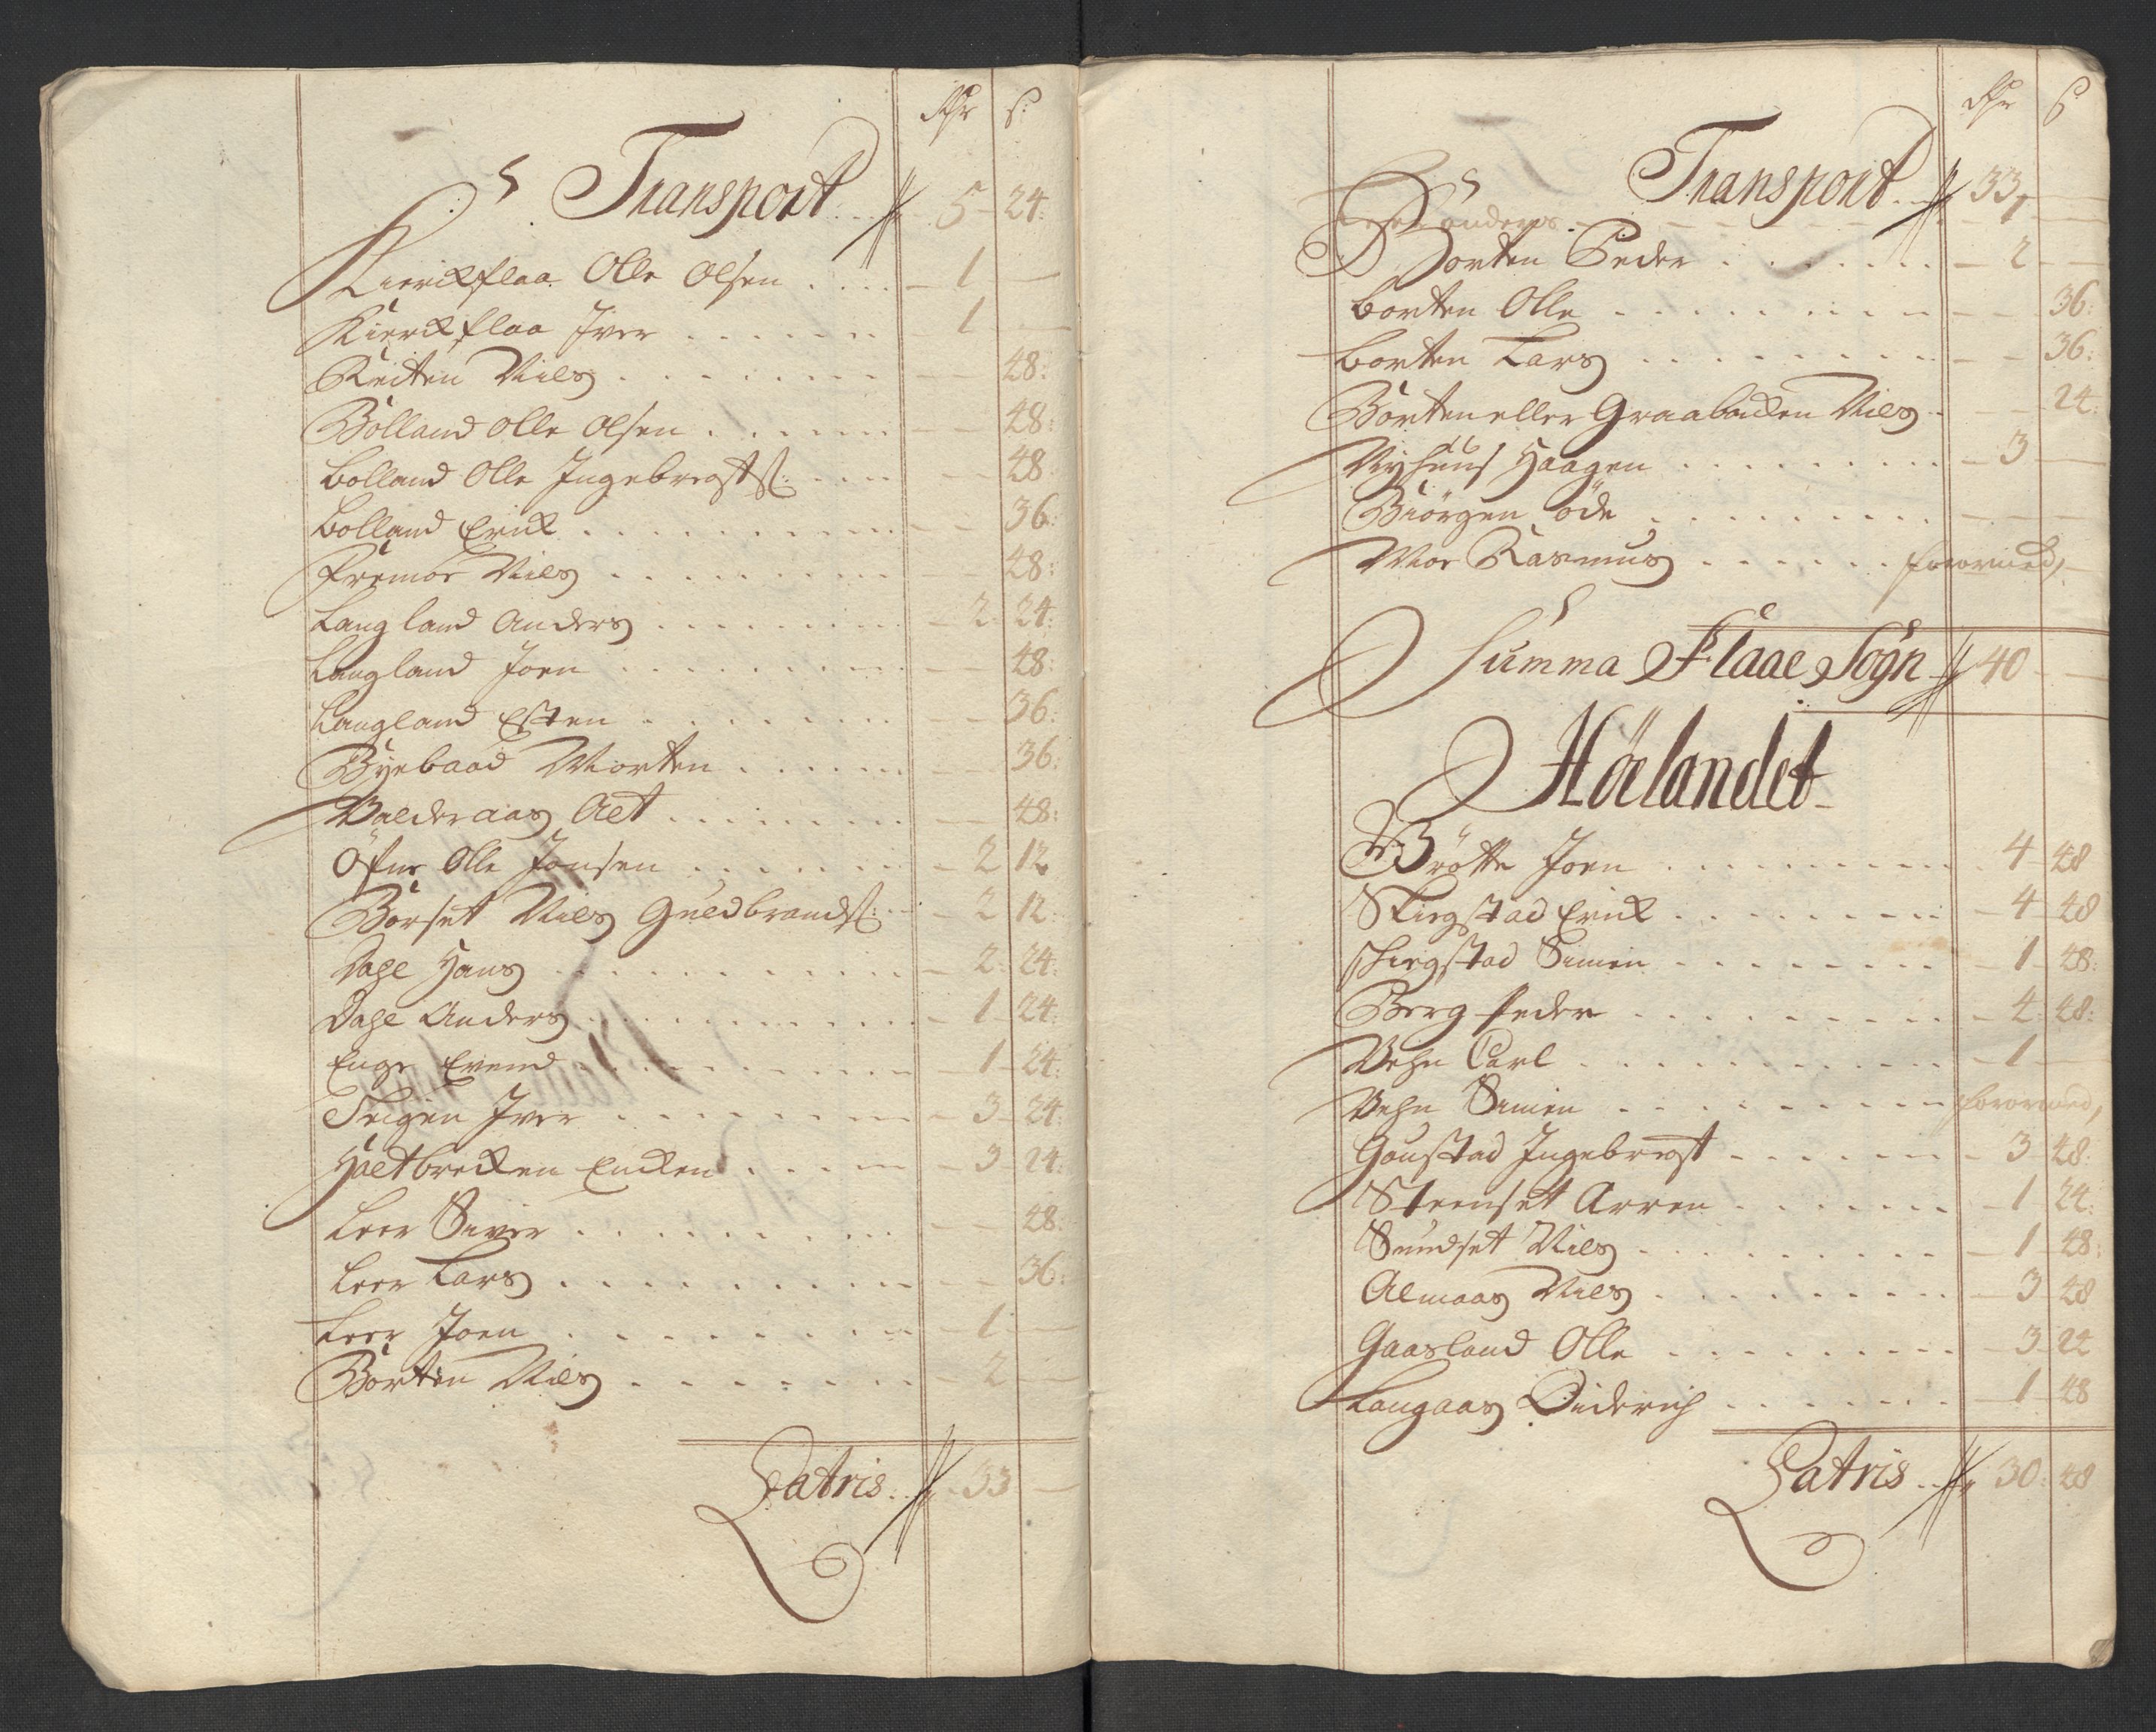 Rdr ß:
Transport 5 24:
Kierckflaa Olle Olsen 1
Kierckflaa Iver 1
Reiten Niels 48:
Bolland Olle Olsen 48:
Bolland Olle Ingebregts: 48
Bolland Erick 36:
Fremoe Niels 48:
Langland Anders 2: 24:
Langland Joen 48:
Langland Esten 36:
Byebaad Morten 36:
Valderaas Alt 48:
Øfne Olle Jonsen 2 12
Borset Niels Guldbrands: 2 12:
Dahl Hans 2: 24:
Dahl Anders 1 24:
Enge Evend 1 24:
Teigen Iver 3 24:
Haltbrecken Encken 3 24:
Leer Siver 48:
Leer Lars 36:
Leer Joen 1
Borten Niels 2
Latris 33
Rdr ß
Transport 33
Leer Anders 1
Borten Peder 2
Borten Olle 36:
Borten Lars 36:
Borten eller Graabacken Niels 24:
Nyhuus Haagen 3
Biörgen öde
Moe Rasmus forarmed,
Summa Flaae Sogn 40
Hölandet
Brøtte Joen 4 48
Skiegstad Erick 4 48
Skiegstad Simen 1 48:
Berg Peder 4: 48:
Vehn Carl 1
Vehn Simen forarmed,
Goustad Ingebregt 3 48:
Steenset Arren 1 24:
Sundset Niels 1 48:
Almaas Niels 3 48
Gaasland Olle 3 24
Langaas Diderich 1 48
Latris 30: 48